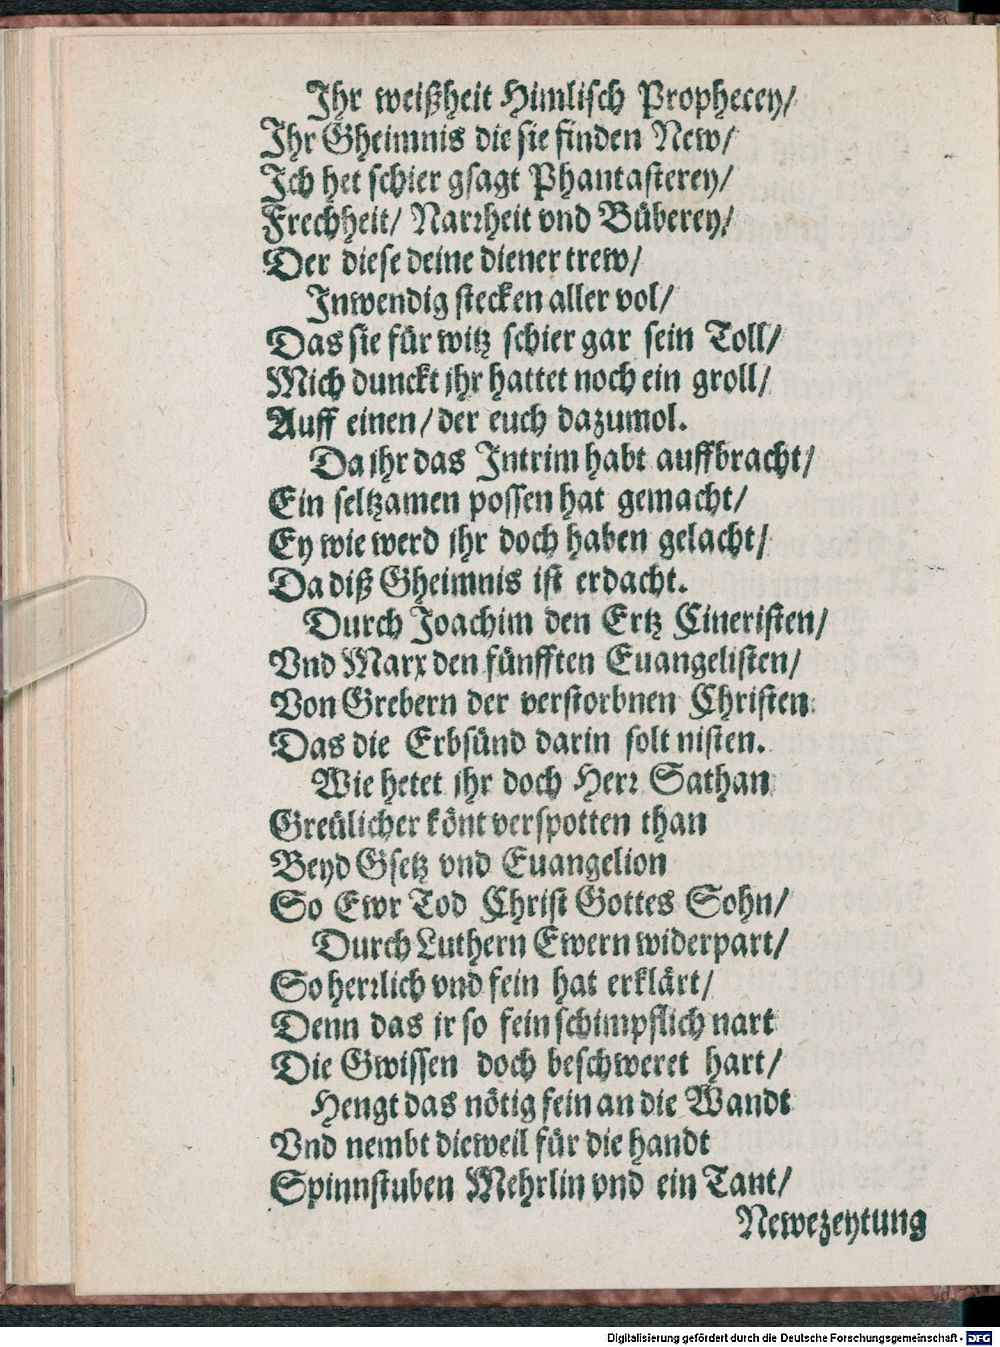 Ihr weißheit Himlisch Prophecey/
Ihr Gheimnis die sie finden New/
Ich het schier gsagt Phantasterey/
Frechheit/ Narrheit vnd Büberey/
Der diese deine diener trew/
Inwendig stecken aller vol/
Das sie für witz schier gar sein Toll/
Mich dunckt jhr hattet noch ein groll/
Auff einen/ der euch dazumol.
Da jhr das Intrim habt auffbracht/
Ein seltzamen possen hat gemacht/
Ey wie werd jhr doch haben gelacht/
Da diß Gheimnis ist erdacht.
Durch Joachim den Ertz Cineristen/
Vnd Marx den fünfften Euangelisten/
Von Grebern der verstorbnen Christen
Das die Erbsünd darin solt nisten.
Wie hetet jhr doch Herr Sathan
Greülicher könt verspotten than
Beyd Gsetz vnd Euangelion
So Ewr Tod Christ Gottes Sohn/
Durch Luthern Ewern widerpart/
So herrlich vnd fein hat erklärt/
Denn das jr so fein schimpflich nart
Die Gwissen doch beschweret hart/
Hengt das nötig fein an die Wandt
Vnd nembt dieweil für die handt
Spinnstuben Mehrlin vnd ein Tant/
Newezeytung
Digitalisierung gefördert durch die Deutsche Forschungsgemeinschaft - DFG